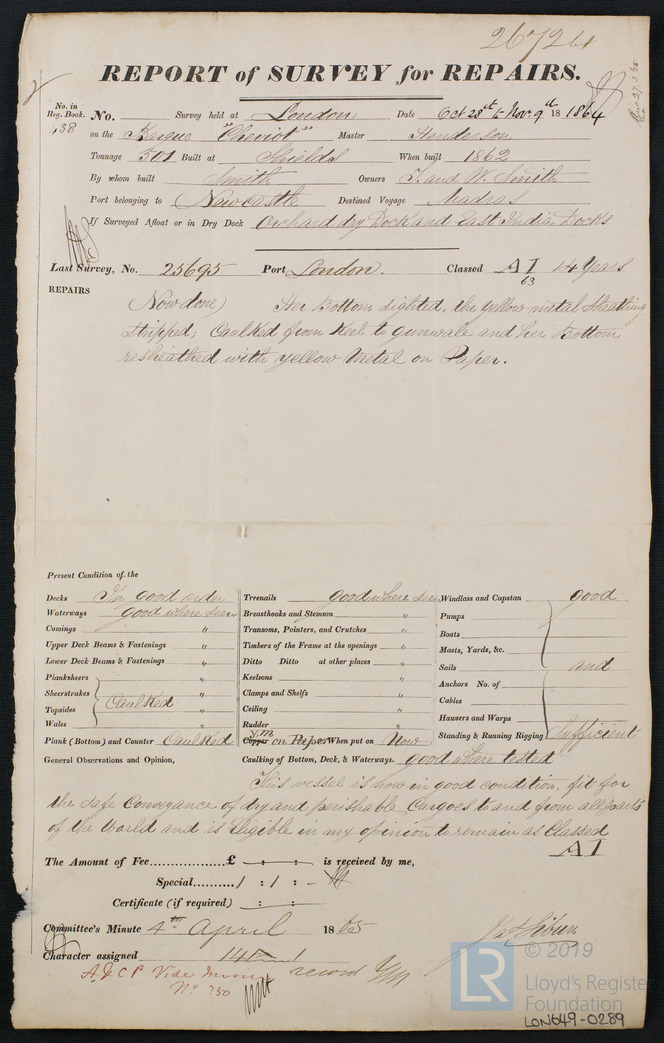 26724
REPORT of SURVEY for REPAIRS.
No. in Reg. Book. No. Survey held at London Date Oct 28th to Nov. 9th 1864
438 on the Barque "Cheviot" Master Henderson
Tonnage 501 Built at Shields When built 1862
By whom built Smith Owners T. and W. Smith
Port belonging to Newcastle Destined Voyage Madras
If Surveyed Afloat or in Dry Dock Orchard dry Dock and East India Docks
Last Survey, No. 25695 Port London. Classed A I 14 Years
63
REPAIRS
Now done) Her Bottom sighted, the yellow metal sheathing
stripped; Caulked from Keel to gunwale and her Bottom
resheathed with yellow Metal on Paper.
Present Condition of the
Decks In good order Treenails good where seen Windlass and Capstan good
Waterways good where seen Breasthooks and Stemson " Pumps
Comings " Transoms, Pointers, and Crutches " Boats
Upper Deck Beams & Fastenings " Timbers of the Frame at the openings " Masts, Yards, &c.
Lower Deck Beams & Fastenings " Ditto Ditto at other places " Sails and
Planksheers " Keelsons " Anchors No. of
Sheerstrakes " Clamps and Shelfs " Cables
Topsides Caulked " Ceiling " Hawsers and Warps
Wales " Rudder " Standing & Running Rigging Sufficient
Plank (Bottom) and Counter Caulked Y.M Copper on Paper When put on Now
General Observations and Opinion, Caulking of Bottom, Deck, & Waterways. good where tested
This vessel is now in good condition, fit for
the safe Conveyance of dry and perishable Cargoes to and from all parts
of the World and is Eligible in my opinion to remain as Classed
A I
The Amount of Fee...............£ - : - : - is received by me,
Special.......... 1 : 1 : -
Certificate (if required) : :
Committee's Minute 4th April 1865
Character assigned 14 A 1
A.&C.P Vide
No 250
record
© 2019
LR
Lloyd's Register
Foundation
LON649-0289